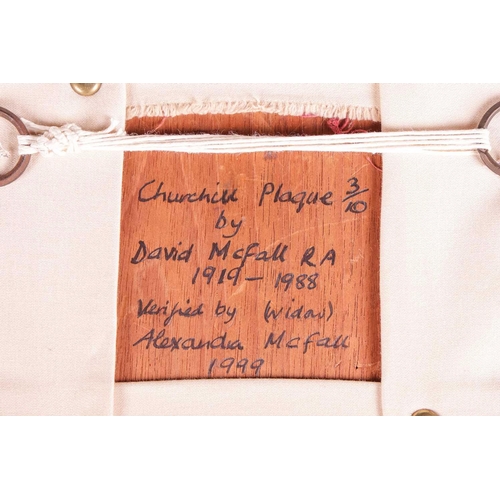 Churchill Plaque 3/10
by
David McFall RA
1919 - 1988
Verified by (widow)
Alexandra McFall
1999